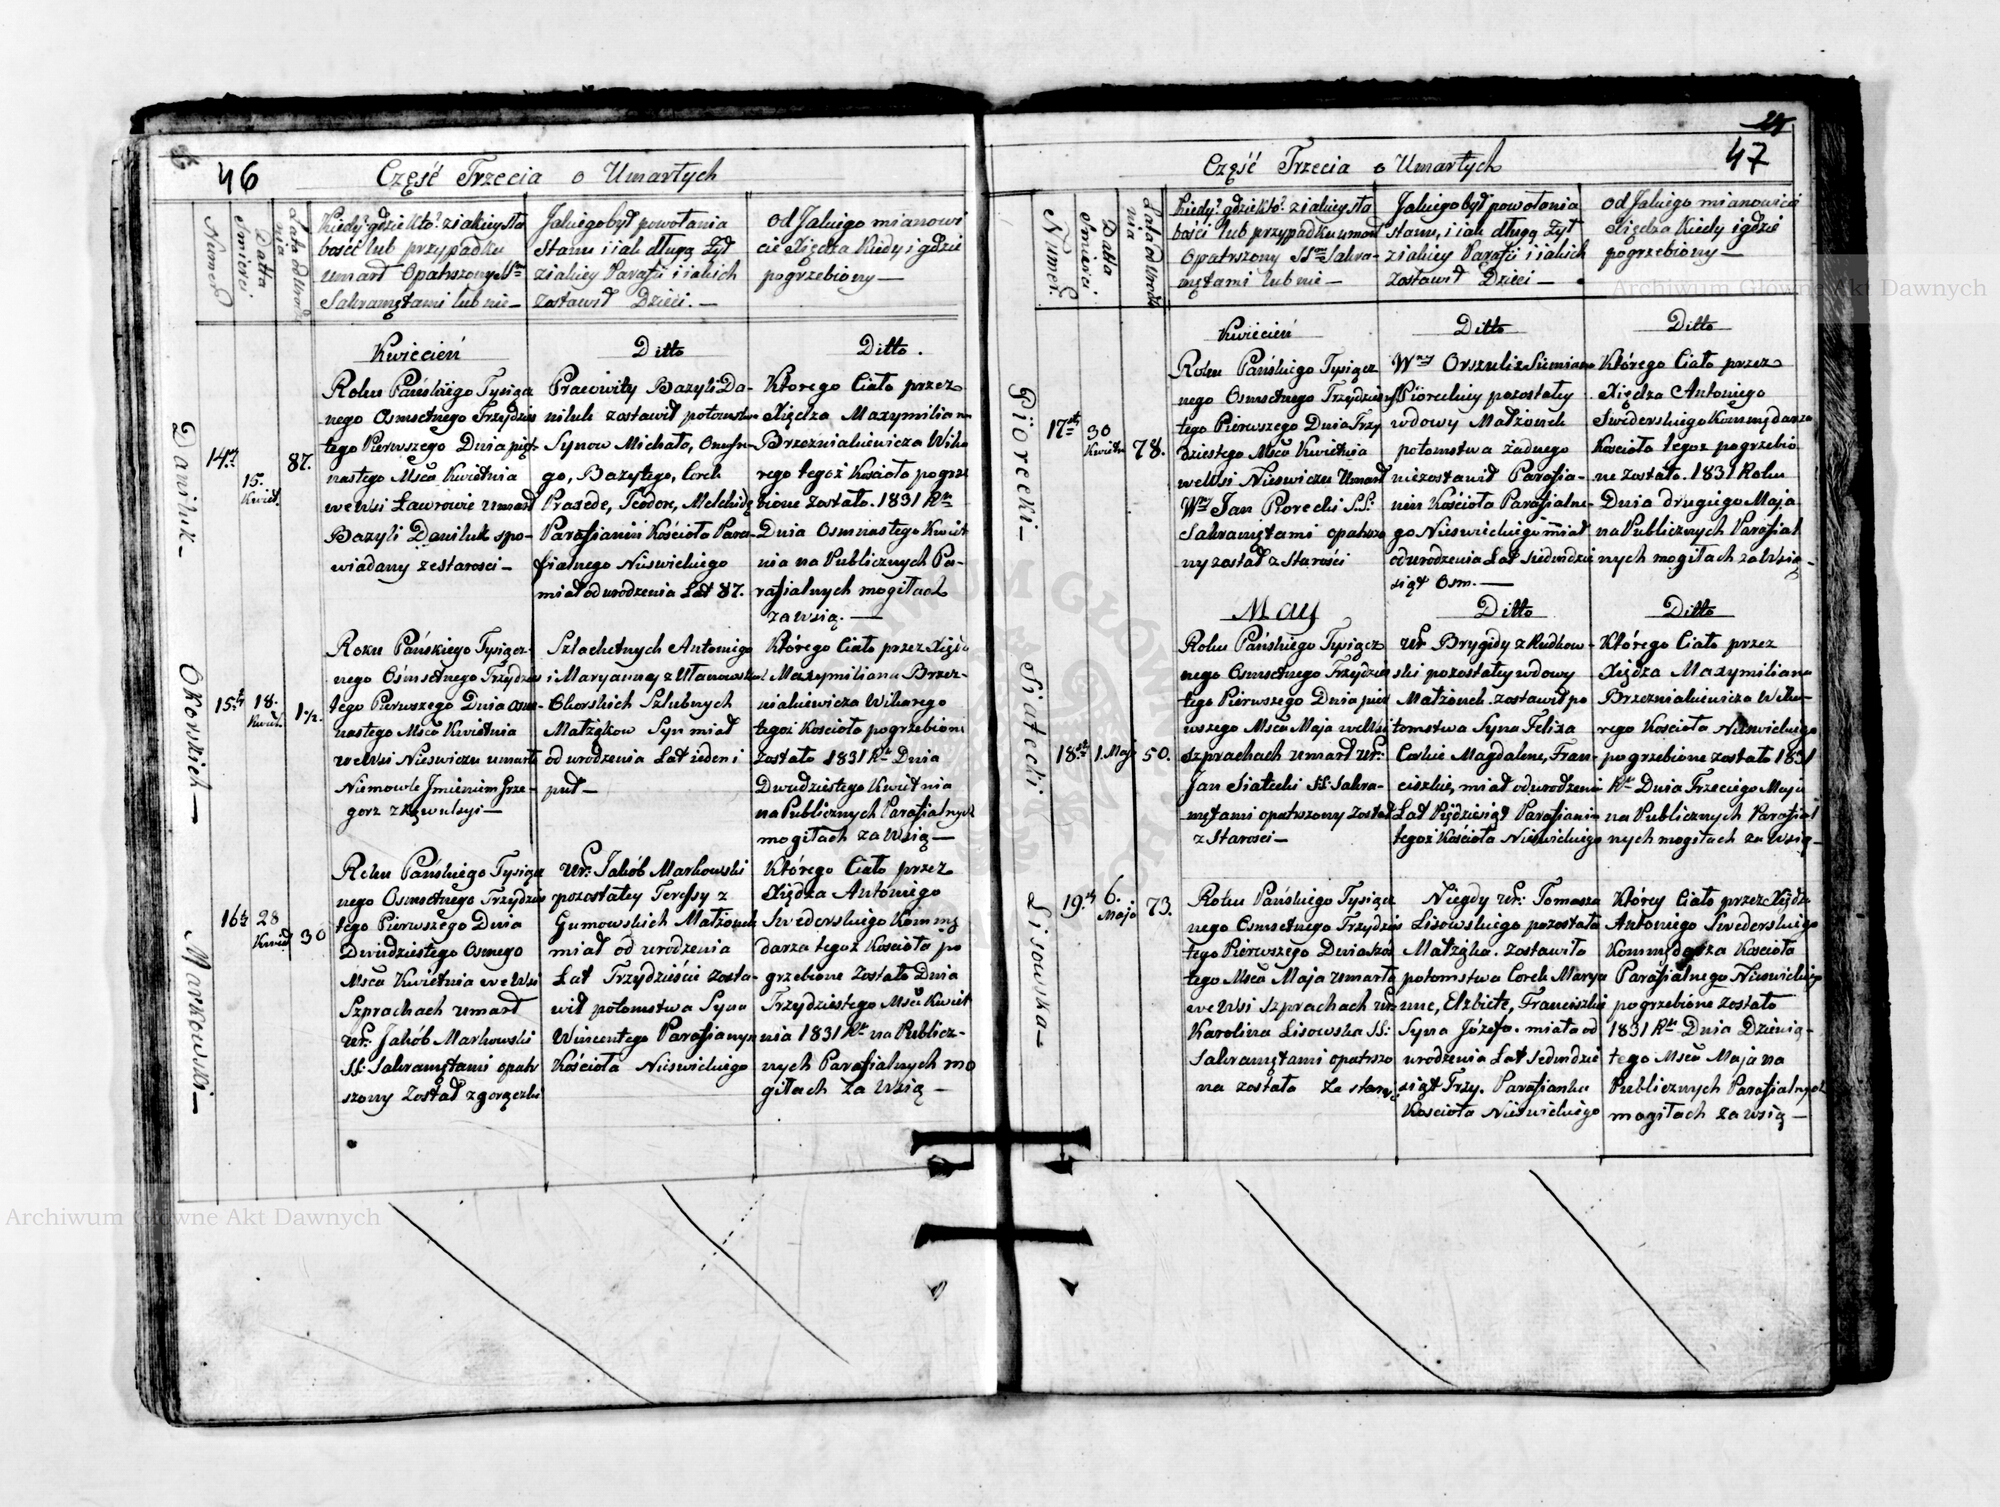 46
Część Trzecia o Umarłych
Numer
Datta Śmierci
Lata od Urodzenia
Kiedy? gdzie kto? z iakiey sła
bości lub przypadku
umarł Opatrzony SSmi
Sakramętami lub nie—
Jakiego był powołania
Stanu i iak długo żył
z iakiey Parafii i iakich
zostawił Dzieci.—
od Jakiego mianowi
cie Xiędza Kiedy i gdzie
pogrzebiony—
Kwiecień
Ditto
Ditto.
Daniluk—
14ty
15. Kwiet.
87.
Roku Pańskiego Tysiącz
nego Osmsetnego Trzydzies
tego Pierwszego Dnia pięt-
nastego Msca Kwietnia
we wsi Ławrowie umarł
Bazyli Daniluk spo-
wiadany ze starosci—
Pracowity Bazyli Da-
niluk zostawił potomstwo
Synow Michała, Onufre-
go, Bazylego, Corek
Praxede, Teodore, Melchidę
Parafianin Kościoła Para-
fialnego Nieswickiego
miał od urodzenia Lat 87.
Którego Ciało przez
Xiędza Maxymiliana
Brzezniakiewicza Wika
rego tegoż Kościoła pogrze
bione zostało. 1831 Rku
Dnia Osmnastego Kwiet
nia na Publicznych Pa-
rafialnych mogiłach
za wsią.—
Okorskich—
15ty
18. Kwiet.
1 1/2.
Roku Pańskiego Tysiącz-
nego Osmsetnego Trzydzies
tego Pierwszego Dnia osm-
nastego Msca Kwietnia
we Wsi Nieswiczu umarło
Niemowle Jmieniem Grze-
gorz z Kąwulsyi—
Szlachetnych Antoniego
i Maryanny z Ułanowskich
Okorskich Szlubnych
Małżąkow Syn miał
od urodzenia Lat ieden i
puł—
Którego Ciało przez Xiędza
Maxymiliana Brzez-
niakiewicza Wikarego
tegoż Kościoła pogrzebione
zostało 1831 Rku Dnia
Dwudziestego Kwietnia
na Publicznych Parafialnych
mogiłach za Wsią—
Markowski—
16ty
28 Kwiet
30
Roku Pańskiego Tysiącz
nego Osmsetnego Trzydzies
tego Pierwszego Dnia
Dwudziestego Osmego
Msca Kwietnia we Wsi
Szprachach umarł
Ur: Jakób Markowski
SS: Sakramętami opatr
szony został z gorączki
Ur: Jakób Markowski
pozostałey Teressy z
Gumowskich Małżonek
miał od urodzenia
Lat Trzydzieści zosta-
wił potomstwa Syna
Wincentego Parafianyn
Kościoła Nieswickiego
Którego Ciało przez
Xiędza Antoniego
Swederskiego Kommę
darza tegoż Kościoła po
grzebione zostało Dnia
Trzydziestego Msca Kwiet
nia 1831 Rku na Publicz-
nych Parafialnych mo
giłach za Wsią—
47
Część Trzecia o Umarłych
Numer
Datta Śmierci
Lata od Urodzenia
Kiedy? gdzie kto? z iakiey sła
bości lub przypadku umarł
Opatrzony SSmi Sakra-
mętami lub nie—
Jakiego był powołania
Stanu, i iak długo żył
z iakiey Parafii i iakich
zostawił Dzieci—
od Jakiego mianowicie
Xiędza Kiedy i gdzie
pogrzebiony—
Kwiecień
Ditto
Ditto
Piorecki—
17sty
30 Kwietn
78.
Roku Pańskiego Tysiącz
nego Osmsetnego Trzydzies
tego Pierwszego Dnia Trzy
dziestego Msca Kwietnia
we Wsi Nieswiczu Umarł
Wny Jan Piorecki SS:
Sakramętami opatrzo
ny został z Starości
Wney Orszuli z Siemian
Pioreckiey pozostałey
wdowy Małżonek
potomstwa żadnego
niezostawił Parafia-
nin Kościoła Parafialne-
go Nieswickiego miał
od urodzenia Lat siedmdzie
siąt Osm.—
Którego Ciało przez
Xiędza Antoniego
Swiderskiego Kommędarza
Kościoła tegoż pogrzebio
ne zostało. 1831 Roku
Dnia drugiego Maja
na Publicznych Parafial
nych mogiłach za Wsią.
May
Ditto
Ditto
Siatecki—
18sty
1. Maj
50.
Roku Pańskiego Tysiącz
nego Osmsetnego Trzydzies
tego Pierwszego Dnia pier
wszego Msca Maja we Wsi
Szprachach umarł Ur:
Jan Siatecki SS: Sakra-
mętami opatrzony został
z Starosci—
Ur Brygidy z Rudkow-
ski pozostałey wdowy
Małżonek. zostawił po
tomstwa Syna Felixa
Corkie Magdalene, Fran-
ciszkie, miał od urodzenia
Lat Pięćdziesiąt Parafianin
tegoż Kościoła Nieswickiego
Którego Ciało przez
Xiędza Maxymiliana
Brzezniakiewicza Wika-
rego Kościoła Nieswickiego
pogrzebione zostało 1831
Rku Dnia Trzeciego Maja
na Publicznych Parafial
nych mogiłach za Wsią—
Lisowska—
19ty
6. Maja
73.
Roku Pańskiego Tysiącz
nego Osmsetnego Trzydzies
tego Pierwszego Dnia szós
tego Msca Maja umarła
we Wsi Szprachach Ur
Karolina Lisowska SS:
Sakramętami opatrzo
na została ze starości
Niegdy Ur: Tomasza
Lisowskiego pozostała
Małżąka. zostawiła
potomstwa Corek Marya
nne, Elzbiete, Franciszkie
Syna Józefa. miała od
urodzenia Lat Siedmdzie
siąt Trzy. Parafianka
Kościoła Nieswickiego
Którey Ciało przez Xiędza
Antoniego Swederskiego
Kommędarza Kościoła
Parafialnego Nieswickiego
pogrzebione zostało
1831 Rku Dnia Dziewią-
tego Msca Maja na
Publicznych Parafialnych
mogiłach za wsią—
Archiwum Główne Akt Dawnych
Archiwum Główne Akt Dawnych